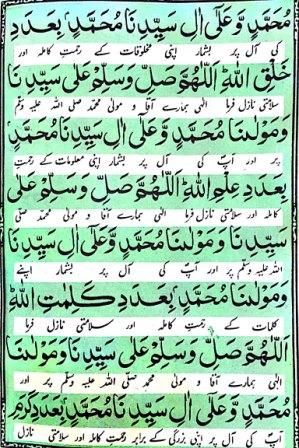 مُحَمَّدٍ وَّعَلٰٓى اٰلِ سَيِّدِنَا مُحَمَّدٍ بِعَدَدِ
پر اور آپ کی آل پر بشمار اپنی مخلوقات کے رحمتِ کاملہ اور
خَلْقِ اللهِ اَللّٰهُمَّ صَلِّ وَسَلِّمْ عَلٰى سَيِّدِنَا
سلامتی نازل فرما الٰہی ہمارے آقا و مولیٰ محمد صلی اللہ علیہ وسلم
وَمَوْلٰنَا مُحَمَّدٍ وَّعَلٰٓى اٰلِ سَيِّدِنَا مُحَمَّدٍ
پر اور آپ کی آل پر بشمار اپنی معلومات کے رحمتِ
بِعَدَدِ عِلْمِ اللهِ اَللّٰهُمَّ صَلِّ وَسَلِّمْ عَلٰى
کاملہ اور سلامتی نازل فرما الٰہی ہمارے آقا و مولیٰ محمد صلی
سَيِّدِنَا وَمَوْلٰنَا مُحَمَّدٍ وَّعَلٰٓى اٰلِ سَيِّدِنَا
اللہ علیہ وسلم پر اور آپ کی آل پر بشمار اپنے
وَمَوْلٰنَا مُحَمَّدٍ بِعَدَدِ كَلِمٰتِ اللهِ
کلمات کے رحمتِ کاملہ اور سلامتی نازل فرما
اَللّٰهُمَّ صَلِّ وَسَلِّمْ عَلٰى سَيِّدِنَا وَمَوْلٰنَا
الٰہی ہمارے آقا و مولیٰ محمد صلی اللہ علیہ وسلم پر اور
مُحَمَّدٍ وَّعَلٰٓى اٰلِ سَيِّدِنَا مُحَمَّدٍ بِعَدَدِ كَرَمِ
آپ کی آل پر اپنی بزرگی کے برابر رحمتِ کاملہ اور سلامتی نازل